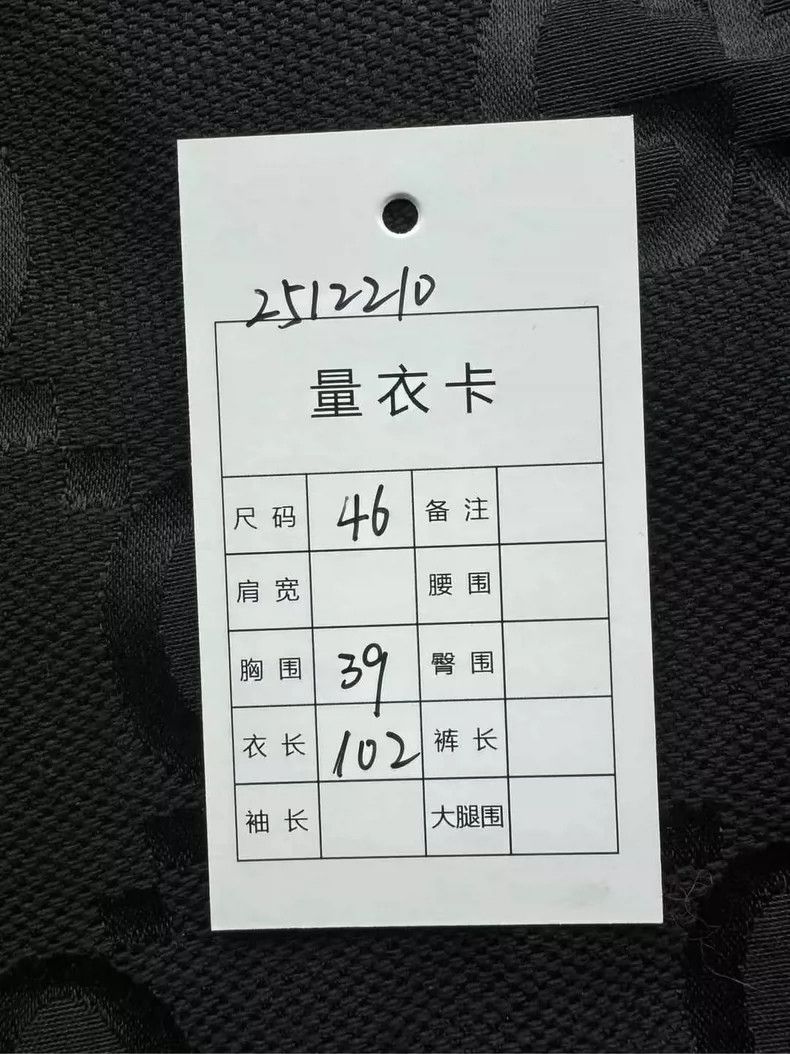 2512210
量衣卡
尺码 46 备注
肩宽 腰围
胸围 39 臀围
衣长 102 裤长
袖长 大腿围